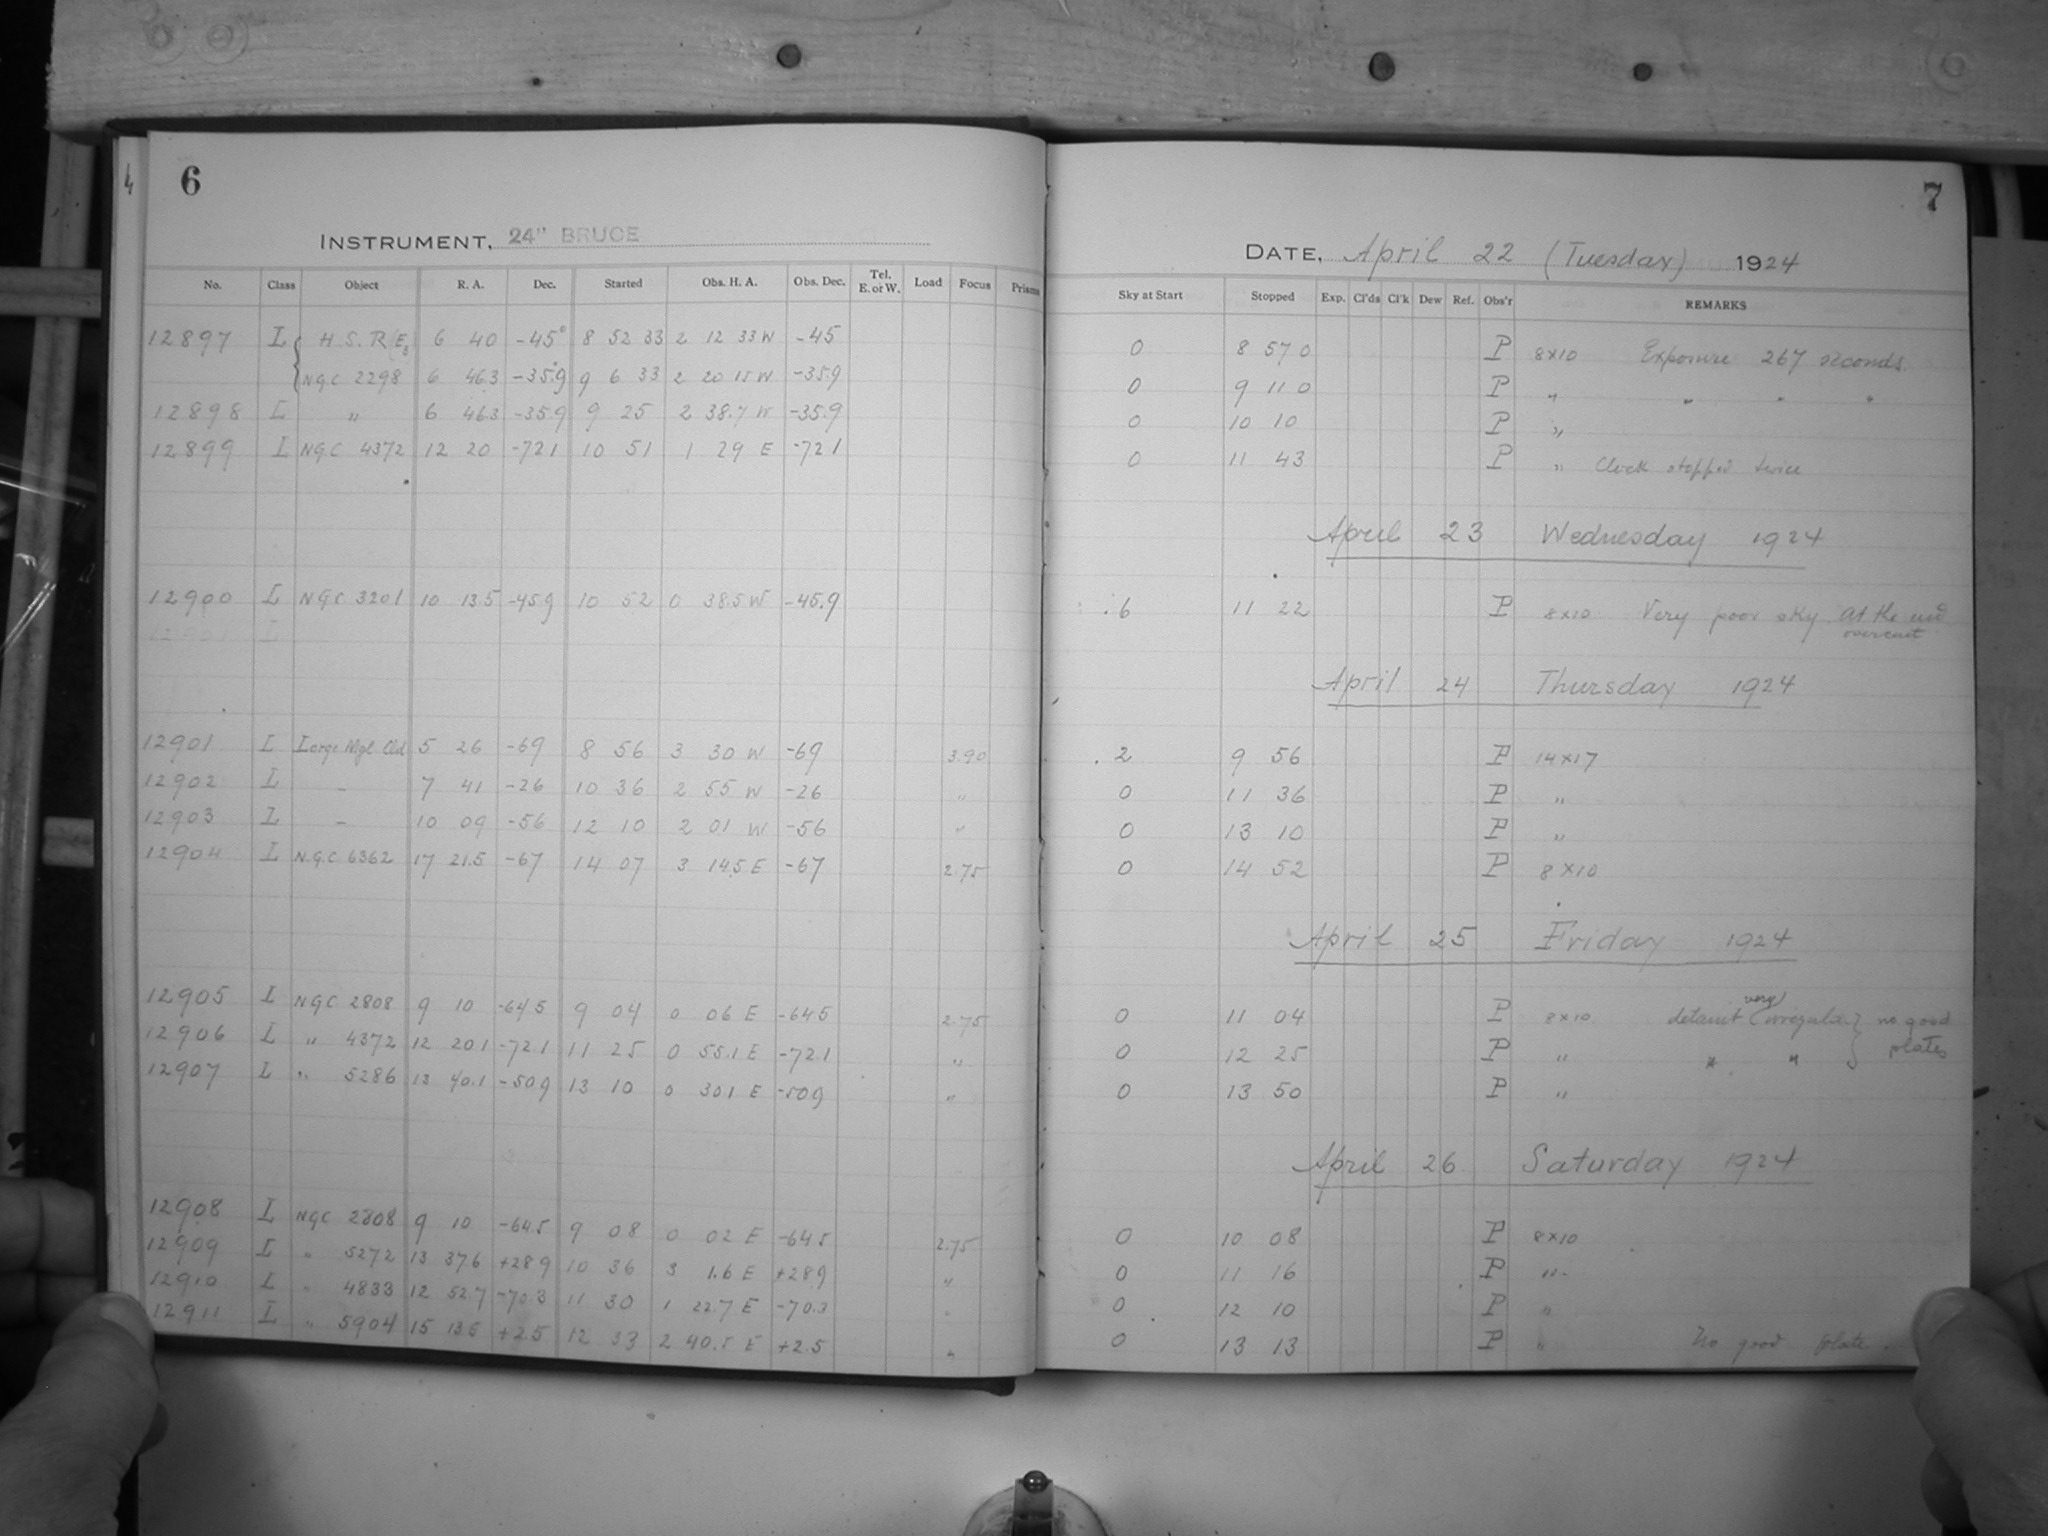 4
6
INSTRUMENT, 24" BRUCE
No. Class Object R. A. Dec. Started Obs. H. A. Obs. Dec. Tel. E. or W. Load Focus Prisms
12897 I H.S.R E5 6 40 -45° 8 52 33 2 12 33 W -45
NGC 2298 6 46.3 -35.9 9 6 33 2 20 15 W -35.9
12898 I " 6 46.3 -35.9 9 25 2 38.7 W -35.9
12899 I NGC 4372 12 20 -72.1 10 51 1 29 E -72.1
12900 I NGC 3201 10 13.5 -45.9 10 52 0 38.5 W -45.9
12901 I
12901 I Large Mgl Cld 5 26 -69 8 56 3 30 W -69 3.90
12902 I - 7 41 -26 10 36 2 55 W -26 "
12903 I - 10 09 -56 12 10 2 01 W -56 "
12904 I NGC 6362 17 21.5 -67 14 07 3 14.5 E -67 2.75
12905 I NGC 2808 9 10 -64.5 9 04 0 06 E -64.5 2.75
12906 I " 4372 12 20.1 -72.1 11 25 0 55.1 E -72.1 "
12907 I " 5286 13 40.1 -50.9 13 10 0 30.1 E -50.9 "
12908 I NGC 2808 9 10 -64.5 9 08 0 02 E -64.5 2.75
12909 I " 5272 13 37.6 +28.9 10 36 3 1.6 E +28.9 "
12910 I " 4833 12 52.7 -70.3 11 30 1 22.7 E -70.3 "
12911 I " 5904 15 13.5 +2.5 12 33 2 40.5 E +2.5 "
7
DATE, April 22 (Tuesday) 1924
Sky at Start Stopped Exp. Cl'ds Cl'k Dew Ref. Obs'r REMARKS
0 8 57 0 P 8×10 Exposure 267 seconds
0 9 11 0 P " " " "
0 10 10 P "
0 11 43 P " Clock stopped twice
April 23 Wednesday 1924
.6 11 22 P 8×10 Very poor sky. At the end
overcast
April 24 Thursday 1924
.2 9 56 P 14×17
0 11 36 P "
0 13 10 P "
0 14 52 P 8×10
April 25 Friday 1924
0 11 04 P 8×10 very irregular } no good
0 12 25 P " " " plates
0 13 50 P "
April 26 Saturday 1924
0 10 08 P 8×10
0 11 16 P "
0 12 10 P "
0 13 13 P " No good plate.